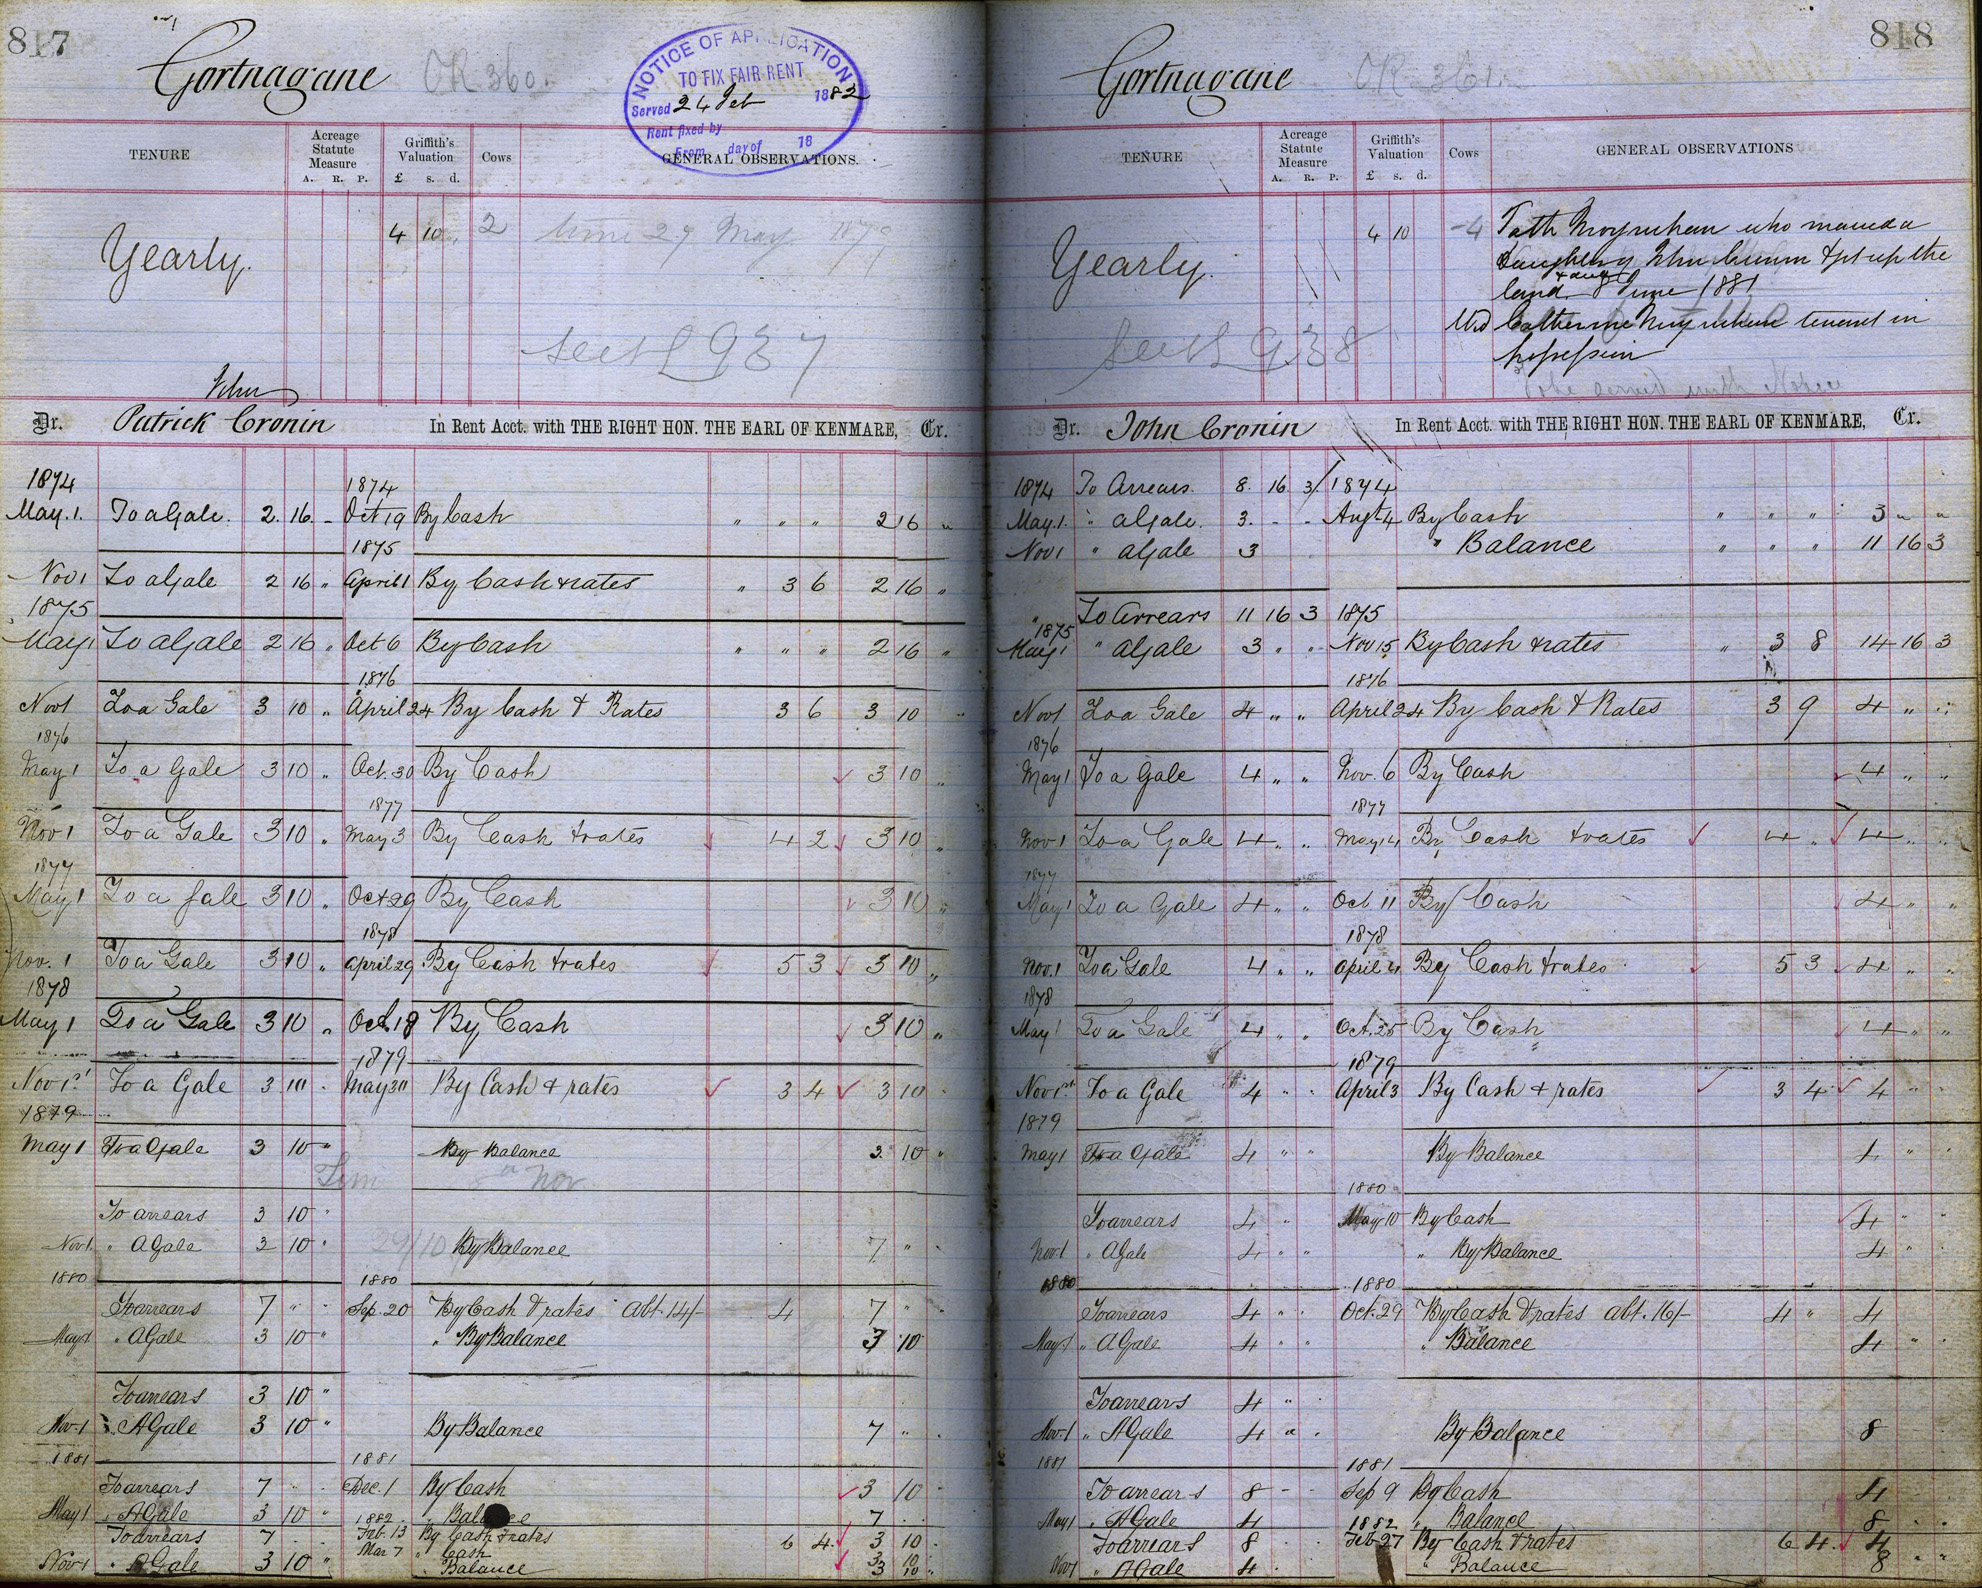 817
Gortnagane OR 360.
NOTICE OF APPLICATION
TO FIX FAIR RENT
Served 24 Feb 1882
Rent fixed by
From day of 18
TENURE
Acreage Statute Measure
A. R. P.
Griffith's Valuation
£ s. d.
Cows
GENERAL OBSERVATIONS.
Yearly. 4 10 2 29 May 1879
937
John
Dr. Patrick Cronin In Rent Acct. with THE RIGHT HON. THE EARL OF KENMARE, Cr.
1874 1874
May. 1. To a Gale. 2. 16. - Oct 19 By Cash " " " 2 16 "
1875
Nov 1 To a Gale 2 16 " April 1 By Cash & rates " 3 6 2 16 "
1875
May 1 To a Gale 2 16 " Oct 6 By Cash " " " 2 16 "
1876
Nov 1 To a Gale 3 10 " April 24 By Cash & Rates 3 6 3 10 "
1876
May 1 To a Gale 3 10 " Oct. 30 By Cash 3 10 "
1877
Nov 1 To a Gale 3 10 " May 3 By Cash & rates 4 2 3 10 "
1877
May 1 To a Gale 3 10 " Oct 29 By Cash 3 10 "
1878
Nov. 1 To a Gale 3 10 " April 29 By Cash & rates 5 3 3 10 "
1878
May 1 To a Gale 3 10 " Oct. 18 By Cash 3 10 "
1879
Nov 1st To a Gale 3 10 May 30 By Cash & rates 3 4 3 10
1879
May 1 To a Gale 3 10 " By Balance 3 10 "
Nov
To arrears 3 10 "
Nov 1. " A Gale 3 10 " 29/10 By Balance 7 "
1880 1880
To arrears 7 " Sep. 20 By Cash & rates Abt. 14/- 4 7 "
May 1 " A Gale 3 10 " " By Balance 3 10
To arrears 3 10 "
Nov 1 " A Gale 3 10 " By Balance 7 "
1881 1881
To arrears 7 Dec. 1 By Cash 3 10
May 1 " A Gale 3 10 " " Balance 7
1882
To arrears 7 Feb. 13 By Cash & rates 6 4 3 10
Mar 7 " Cash 3 10
Nov 1 " A Gale 3 10 " " Balance 3 10 "
818
Gortnagane OR 361.
TENURE
Acreage Statute Measure
A. R. P.
Griffith's Valuation
£ s. d.
Cows
GENERAL OBSERVATIONS
Yearly. 4 10 4 Patk Moynihan who married a
daughter of John Cronin & got up the
land 8 June 1881
Wid Catherine Moynihan tenant in
possession
938
To be served with Notice
Dr. John Cronin In Rent Acct. with THE RIGHT HON. THE EARL OF KENMARE, Cr.
1874 To Arrears. 8. 16 3 1874
May. 1. " a Gale. 3. - - Augt 4 By Cash " " " 3 " "
Nov 1 " a Gale 3 " Balance " " " 11 16 3
" To Arrears 11 16 3 1875
1875
May 1 " a Gale 3 " " Nov 15 By Cash & rates " 3 8 14 16 3
1876
Nov 1 To a Gale 4 " " April 24 By Cash & Rates 3 9 4 " "
1876
May 1 To a Gale 4 " " Nov. 6 By Cash 4 " "
1877
Nov 1 To a Gale 4 " " May 14 By Cash & rates 4 " 4 " "
1877
May 1 To a Gale 4 " " Oct 11 By Cash 4 " "
1878
Nov. 1 To a Gale 4 " " April 4 By Cash & rates 5 3 4 " "
1878
May 1 To a Gale 4 " " Oct. 25 By Cash 4 " "
1879
Nov 1st To a Gale 4 " " April 3 By Cash & rates 3 4 4 " "
1879
May 1 To a Gale 4 " " By Balance 4 " "
1880
To arrears 4 " May 10 By Cash 4 " "
Nov 1 " A Gale 4 " " " By Balance 4 "
1880 1880
To arrears 4 " Oct. 29 By Cash & rates abt. 16/- 4 " 4
May 1 " A Gale 4 " " " Balance 4 "
To arrears 4 "
Nov 1 " A Gale 4 " By Balance 8
1881 1881
To arrears 8 - - Sep 9 By Cash 4
May 1 " A Gale 4 " Balance 8
1882
To arrears 8 Feb 27 By Cash & rates 6 4 4
Nov 1 " A Gale 4 " Balance 8